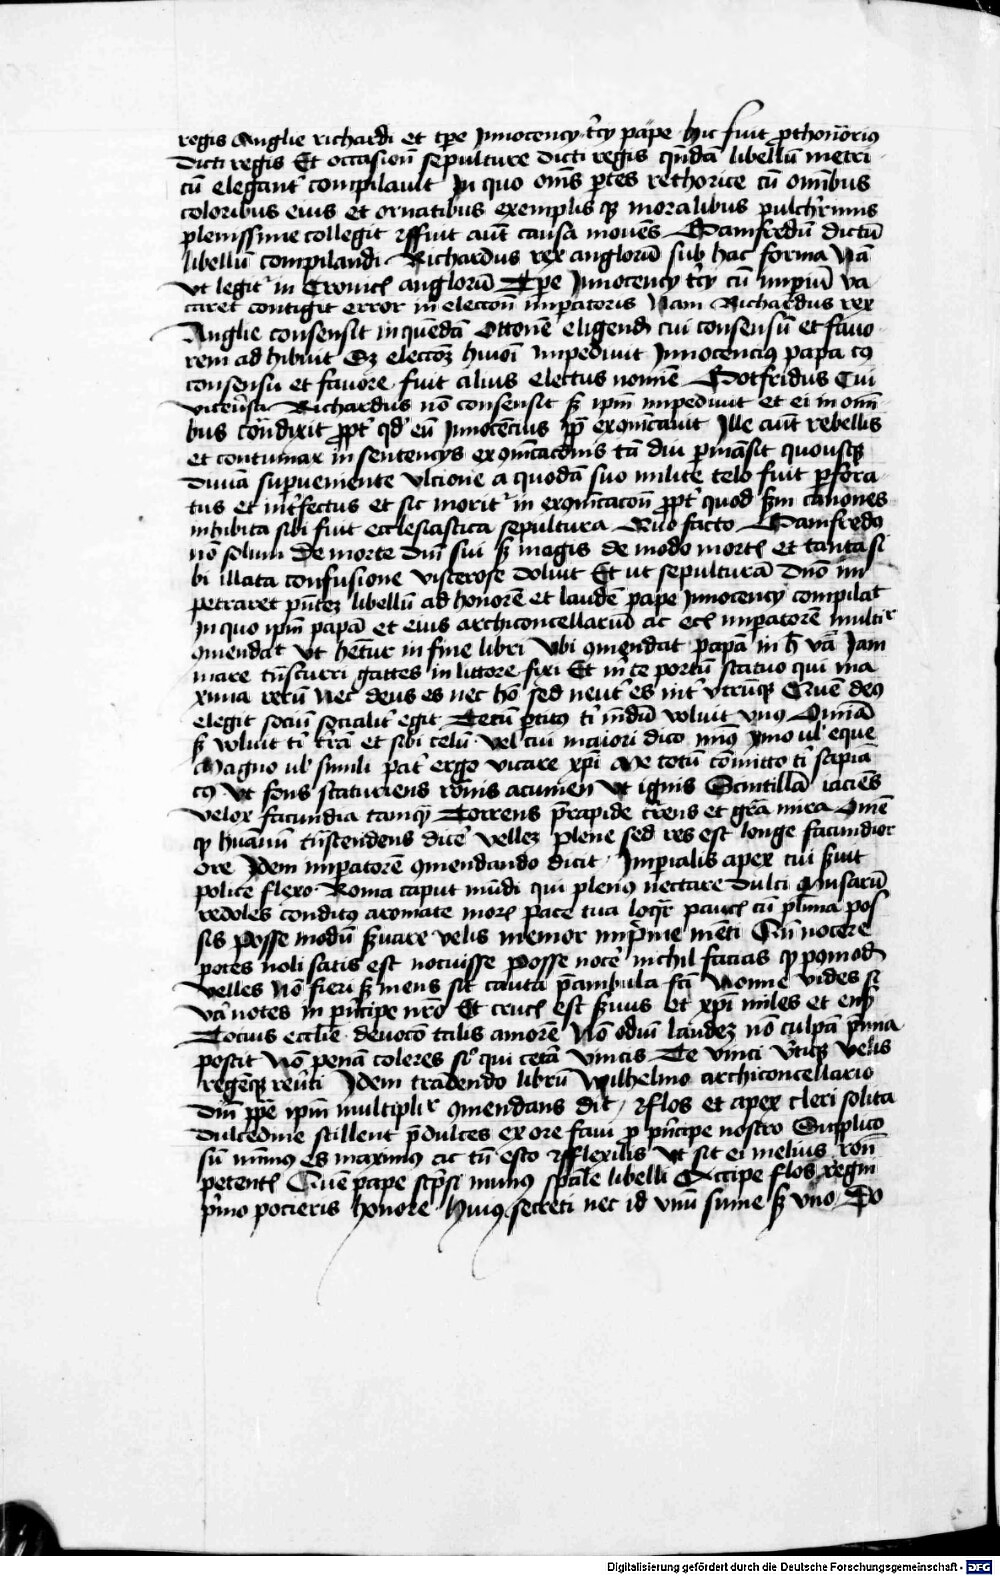 regis Anglie richardi et tp̄e Jnnocency tr̄cy pape hic fuit p̄thonōrius
dicti regis Et occasion̄ sepulture dicti regis qn̄dā libellū metri
cū elegant̄ compilauit Jn quo om̄s p̄tes rethorice cū om̄ibus
coloribus eius et ornatibus exemplis qꝫ moralibus pulchr̄rimis
plenissime collegit Fuit aut̄ causa mouēs Gamfredū dictū
libellū compilandi Richardus rex anglorū sub hac forma Nā
vt legit᷑ in Cronicꝭ anglorū Tp̄e Jnnocency tr̄cy cū imp̄iū va
caret contigit error in eleccoū imp̄atoris Nam Richardus rex
Anglie consensit in quēdā Ottonē eligend̄ cui consensū et fauo
rem ad hibuit Sꝫ eleccoꝫ hm̄oi impediuit Jnnocencius papa cꝯ
consensu et fauore fuit alius electus nom̄e Gotfridus Cui
vicev̄sa Richardus nō consensit sꝫ ip̄m impediuit et ei in om̄i
bus cōtradixit ꝓpt̄ qd̄ eū Jnnocēcius pp̄ excōicauit Jlle aūt rebellis
et contumax in sentencys excōicacōnis tā diu p̄māsit quousqꝫ
diuīa sup̄ueniente vlcione a quodā suo milite telo fuit p̄fora
tus et int̄fectus et sic morit᷑ in excōicacōn̄ ꝓpt̄ quod sm̄ canones
inhibita sibi fuit ecclesiastica sepultura Quo facto Gamfredꝯ
nō solum de morte dn̄i sui sꝫ magis de modo mortꝭ et tanta si
bi illata confusione viscerose doluit Et ut sepulturā dn̄o im
petraret pn̄teꝫ libellū ad honorē et laudē pape Jnnocency compilat
Jn quo ip̄m papā et eius archicancellariū ac ecꝫ imp̄atorē multir̄
ꝯmendat vt hēt᷑ur in fine libri Vbi ꝯmendat papā in h̄ vā Jam
mare tn̄scurri gattes in littore fixi Et in te portū statuo qui ma
xima rerū Nec deus es nec hō sed neut̄ es int̄ vtrūqꝫ Quē deꝯ
elegit sociū socialit̄ egit Tecū p̄titꝯ tibi mūdū voluit vnꝯ Om̄ia
sꝫ voluit ti t̄rā et sibi celū Vel cui maiori dico min̄ꝯ Jmo ul̄ eque
Magno ul̄ simili Pat̄ ergo vicare xp̄i Me totū cōmitto ti᷑ sapiā
cꝯ Vt fons scaturiens rōnis acumen Vt ignis Scintillā iaciēs
velox facundia tamqꝫ Torrens p̄rapide tr̄ens et gr̄a mira Om̄e
qꝫ huānū tn̄scendens dicē velleꝫ Plene sed res est longe facundior
ore Jdem imp̄atorē ꝯmendando dicit Jmp̄ialis apex cui s̄uit
police flexo Roma caput mūdi qui plenꝯ nectare dulci Musarū
redoles conditꝯ aromate morꝭ Pace tua loqr̄ paucꝭ cū pl̄ima pos
sis Posse modū s̄uare velis memor imp̄ime mēti Cū nocere
potes noli satis est nocuisse Posse nocē nichil facias qꝫ p9mod̄
velles Nō fieri sꝫ mens sit cauta p̄ambula f̄ci Nonne vides si
vā notes in p̄ncipe nr̄o Et crucꝭ est s̄uus et xp̄i miles et ens̄
Tocius eccl̄ie deuocō talis amorē Nō odiū laudeꝫ nō culpā p̄mia
poscit Nō penā toleres si᷑ qui cetā vincis Te vinci v̄tiqꝫ velis
regēqꝫ reūti Jdem tradendo librū Wilhelmo archicancellario
dn̄i pp̄e ip̄m multiplir̄ ꝯmendans dic̄ Flos et apex cleri solita
dulcedine stillent p̄dulces ex ore faui p̄ p̄ncipe nostro Supplico
sū mīmus es maximus ac tū esto Flexilis vt sit ei melius ron̄
petentꝭ Quē pape scp̄si munꝯ sp̄ale libelli Accipe flos regni
p̄mo pocieris honore Huius secreti nec id vnū sume sꝫ vno Do
Digitalisierung gefördert durch die Deutsche Forschungsgemeinschaft - DFG